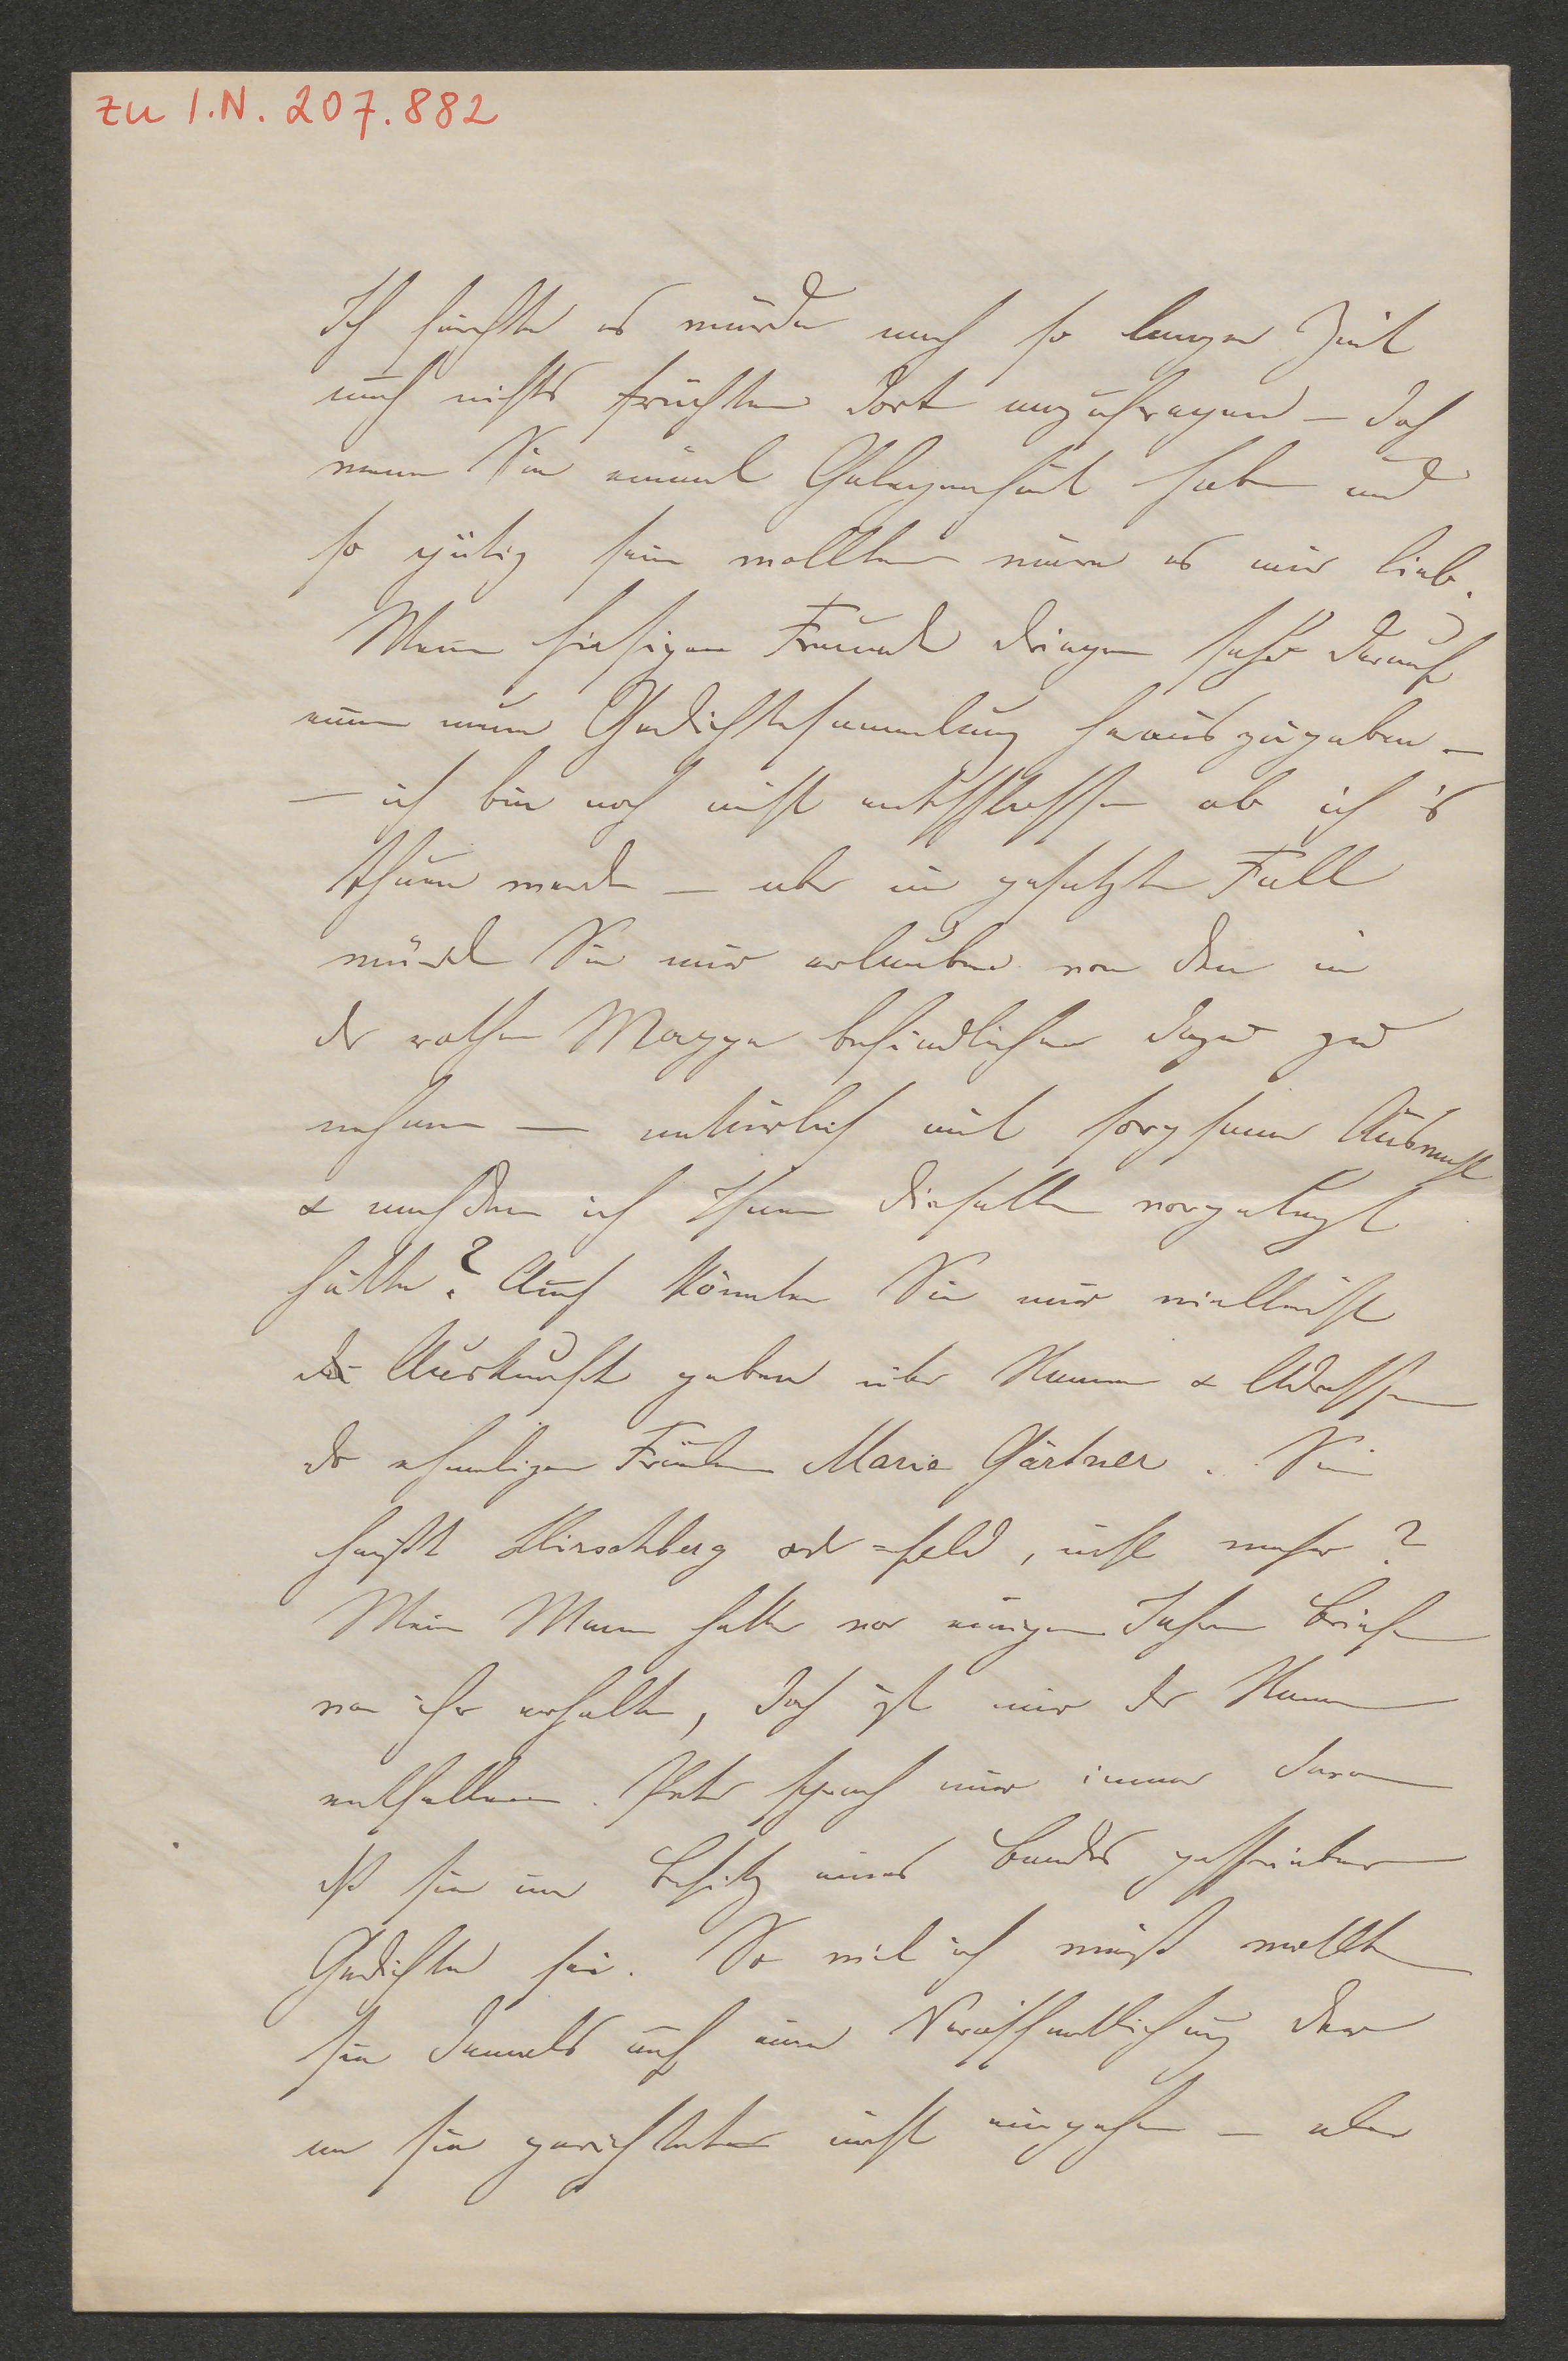 zu I.N. 207.882
Ich fürchte es würde nach so langer Zeit
auch nichts früchten dort anzufragen – doch
wenn Sie einmal Gelegenheit haben und
so gütig sein wollten wäre es mir lieb.
Meine hiesigen Freunde dringen sehr darauf
eine neue Gedichtesammlung herauszugeben –
– ich bin noch nicht entschlossen ob ich 's
thuen werde – aber im gesetzten Fall
würden Sie mir erlauben von den in
der rothen Mappe befindlichen dazu zu
nehmen – natürlich mit sorgsamer Auswahl
& nachdem ich Ihnen dieselben vorgelegt
hätte? Auch könnten Sie mir vielleicht
die Auskunft geben über Namen & Adresse
der ehemaligen Fräulein Marie Gärtner. Sie
heißt Hirschberg oder =feld, nicht wahr?
Mein Mann hatte vor einigen Jahren Briefe
von ihr erhalten, doch ist mir der Name
entfallen. Peter sprach mir immer davon
daß sie im Besitz eines Bandes geschriebener
Gedichte sei. So viel ich weiß wollte
sie damals auf eine Veröffentlichung der
an sie gerichteten nicht eingehen – aber